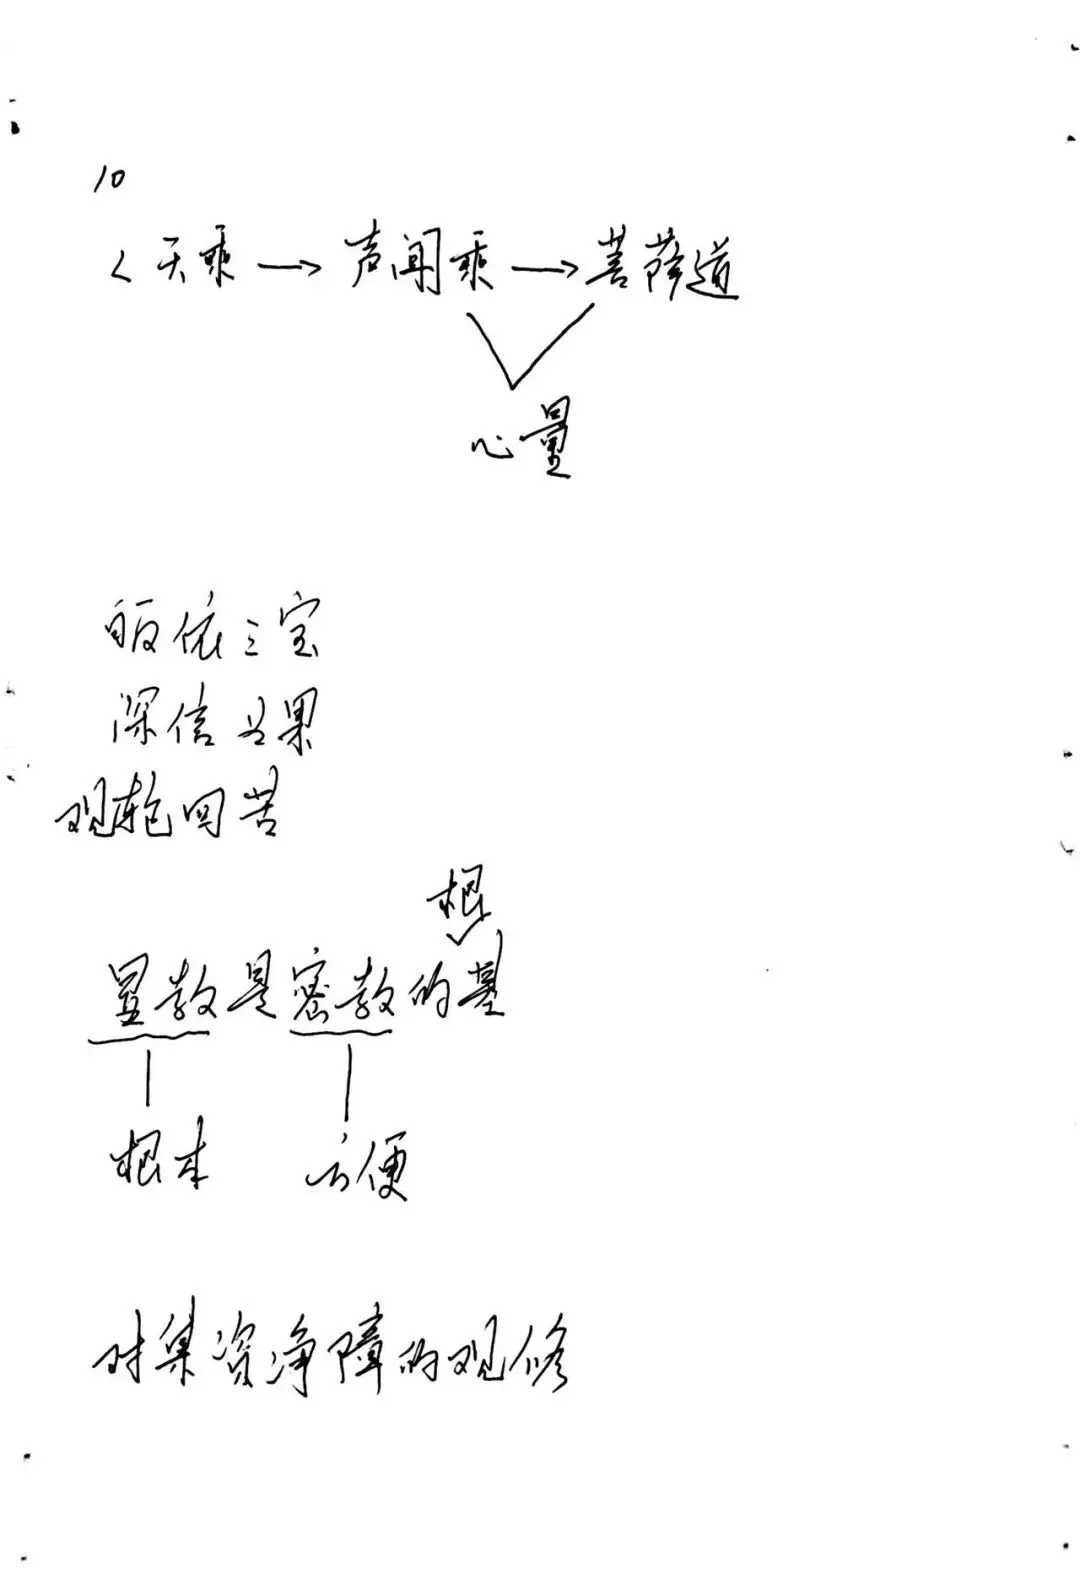 10
人天乘→声闻乘→菩萨道
心量
皈依三宝
深信因果
观轮回苦
根
显教是密教的基
根本 方便
对集资净障的观修